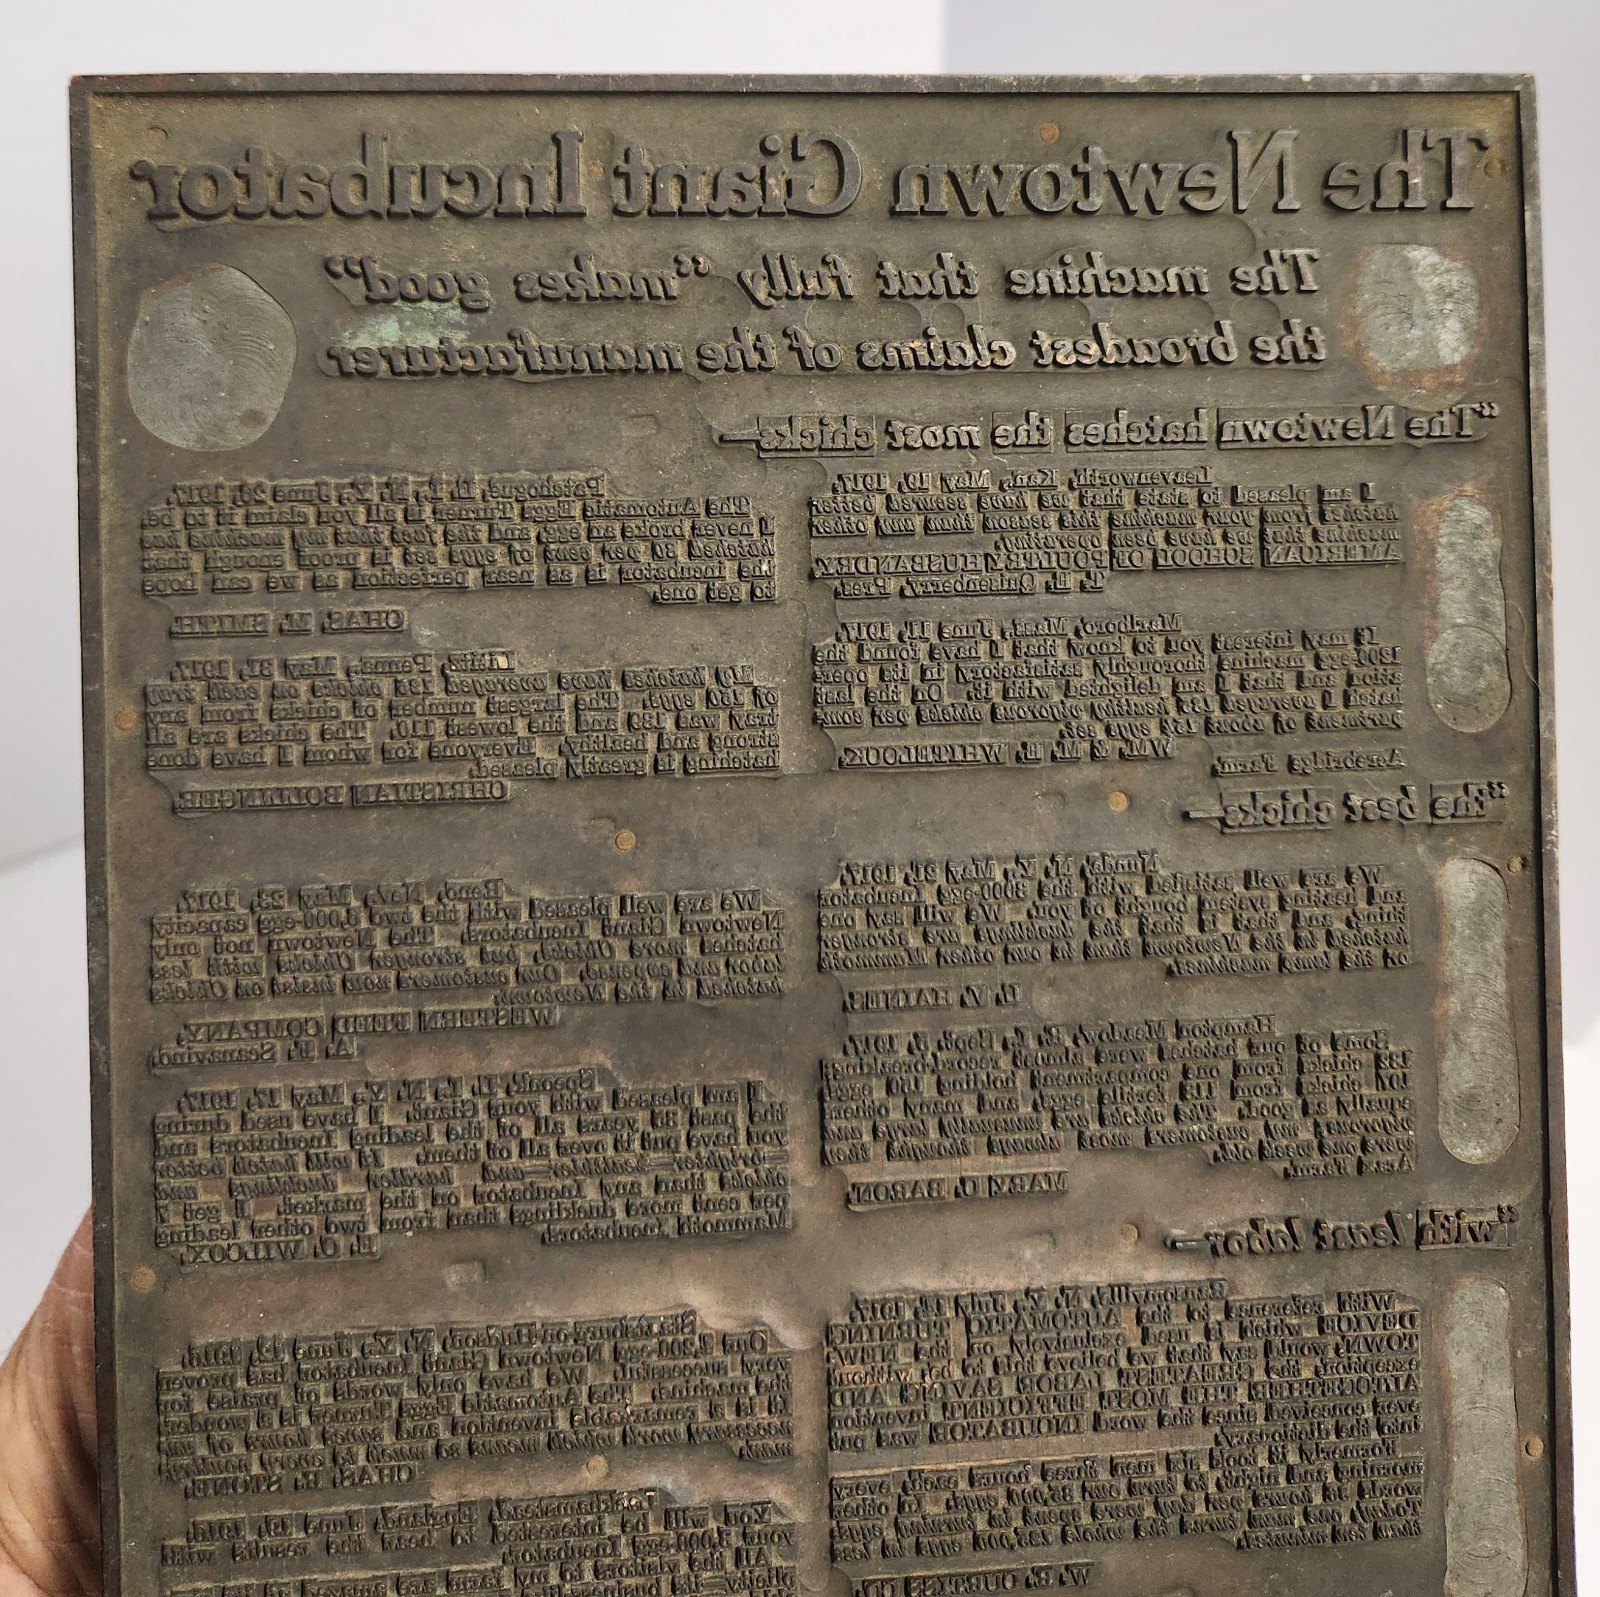 The Newtown Giant Incubator
The machine that fully "makes good"
the broadest claims of the manufacturer
"The Newtown hatches the most chicks—
Leavenworth, Kan., May 19, 1917.
I am pleased to state that we have secured better
hatches from your machine this season than any other
machine that we have been operating.
AMERICAN SCHOOL OF POULTRY HUSBANDRY.
T. E. Quisenberry, Pres.
Marlboro, Mass., June 11, 1917.
It may interest you to know that I have found the
machine thoroughly satisfactory in its oper-
ation and that I am delighted with it. On the last
hatch I averaged 133 healthy vigorous chicks per com-
partment of about 154 eggs set.
WM. & M. E. WHITELOCK.
Acrebridge Farm.
Patchogue, L. I., N. Y., June 26, 1917.
The Automatic Eggs Turner is all you claim it to be.
I never broke an egg, and the fact that my machine has
hatched 80 per cent of eggs set is proof enough that
the incubator is as near perfection as we can hope
to get one.
CHAS. M. SMITH.
Lititz, Penna., May 31, 1917.
My hatches have averaged 125 chicks on each tray
of 150 eggs. The largest number of chicks from any
tray was 139 and the lowest 110. The chicks are all
strong and healthy. Everyone for whom I have done
hatching is greatly pleased.
CHRISTIAN BOLLINGER.
"the best chicks—
Nunda, N. Y., May 21, 1917.
We are well satisfied with the 3000-egg Incubator
and heating system bought of you. We will say one
thing, and that is that the ducklings are stronger
hatched in the Newtown than in our other Mammoth
or the lamp machines.
U. V. HAINES.
Hampton Meadow, R. I., Sept. 5, 1917.
Some of our hatches were almost record-breaking;
132 chicks from one compartment holding 150 eggs;
107 chicks from 113 fertile eggs, and many others
equally as good. The chicks are unusually large and
vigorous; my customers most always thought they
were one week old.
Acax Farm.
MARY C. BARON.
Reno, Nev., May 23, 1917.
We are well pleased with the two 6,000-egg capacity
Newtown Giant Incubators. The Newtown not only
hatches more Chicks, but stronger Chicks with less
labor and expense. Our customers now insist on Chicks
hatched in the Newtown.
WESTERN FEED COMPANY.
A. E. Scaravino.
Speonk, L. I., N. Y., May 17, 1917.
I am pleased with your Giant. I have used during
the past 36 years all of the leading Incubators and
you have put it over all of them. It will hatch better
—brighter—healthier—and hardier ducklings and
chicks than any Incubator on the market. I get 7
per cent more ducklings than from two other leading
Mammoth Incubators.
E. O. WILCOX.
"with least labor—
Ransomville, N. Y., July 12, 1917.
With reference to the AUTOMATIC TURNING
DEVICE which is used exclusively on the NEW-
TOWN, would say that we believe this to be, without
exception, the GREATEST LABOR SAVING AND
ALTOGETHER THE MOST EFFICIENT invention
ever conceived since the word INCUBATOR was put
into the dictionary.
Formerly it took six men three hours each, every
morning and night, to turn our 35,000 eggs. In other
words 36 hours per day were spent in turning eggs.
Today, one man turns the whole eggs in less
than ten minutes.
W. R. CURTISS CO.
Staatsburg-on-Hudson, N. Y., June 12, 1916.
Our 2,200-egg Newtown Giant Incubator has proven
very successful. We have only words of praise for
the machine. The Automatic Eggs Turner is a wonder.
It is a remarkable invention and saves hours of un-
necessary work which means so much to every poultry-
man.
CHAS. H. STONE.
Berkhamstead, England, June 19, 1916.
You will be interested to hear the results with
your 3,000-egg Incubator.
All the visitors to my farm are amazed at its